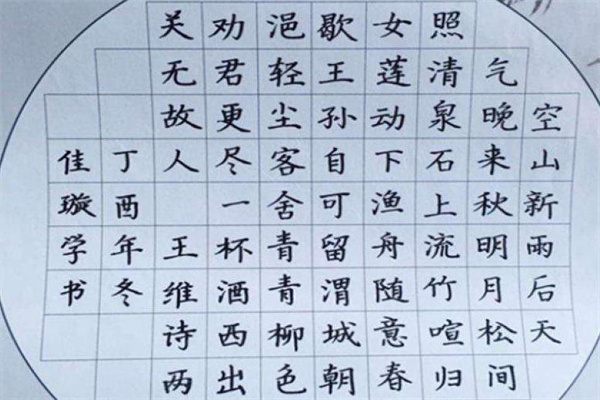 空山新雨后天
气晚来秋明月松间
照清泉石上流竹喧归
女莲动下渔舟随意春
歇王孙自可留渭城朝
浥轻尘客舍青青柳色
劝君更尽一杯酒西出
关无故人 王维诗两
丁酉年冬
佳璇学书